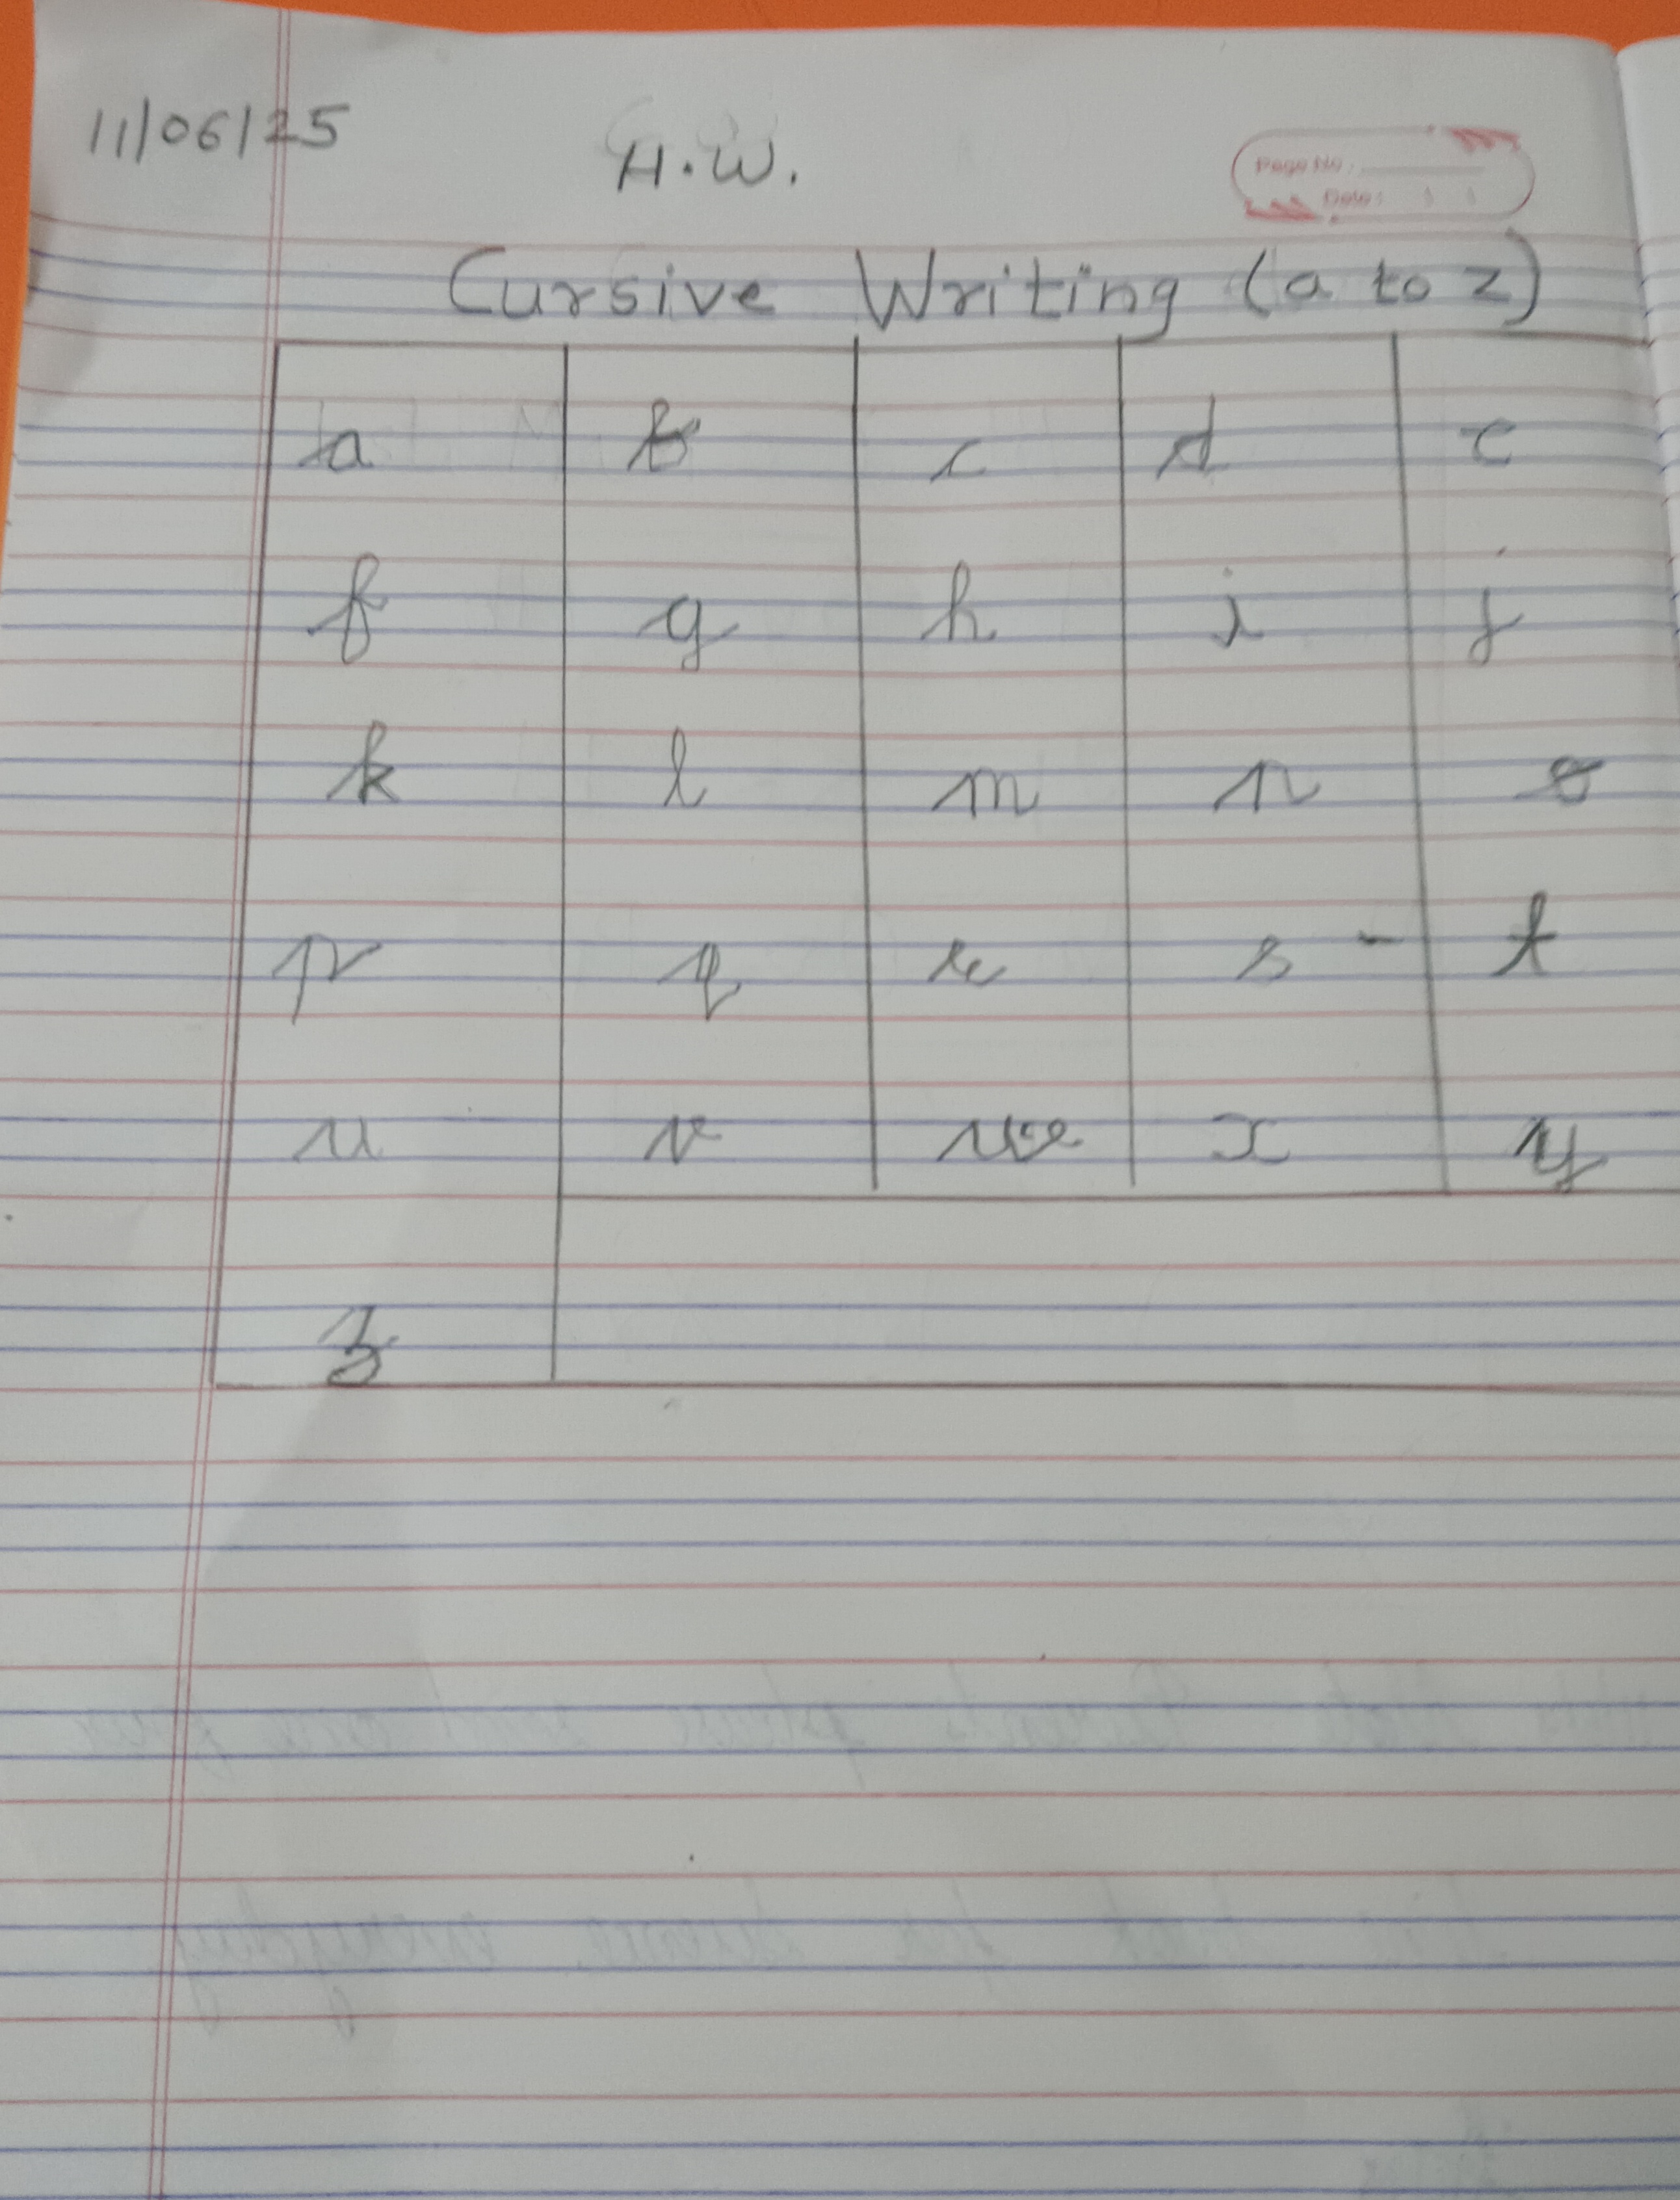 11/06/25
H.W.
Page No.
Date:
Cursive Writing (a to z)
a b c d e
f g h i j
k l m n o
p q r s - t
u v w x y
z